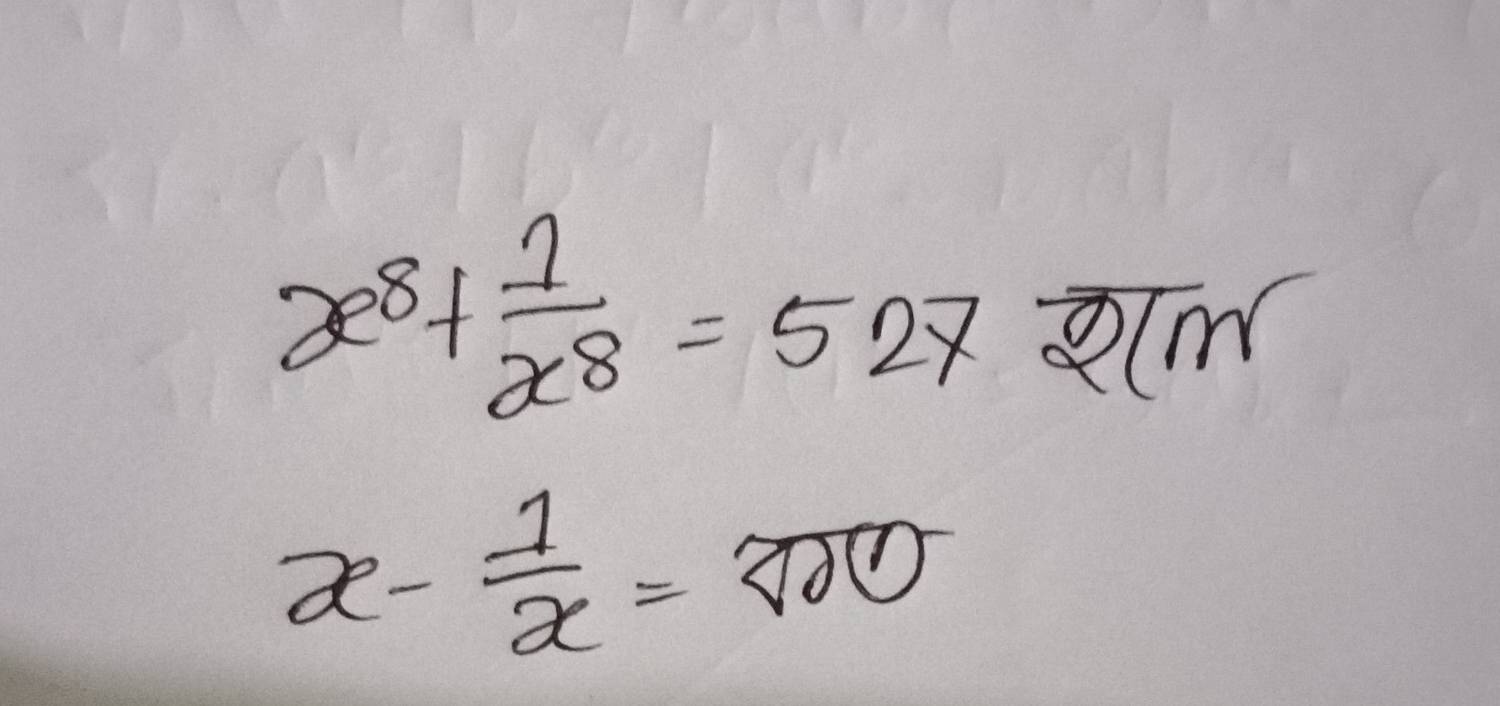 x⁸ + 1/x⁸ = 527 হলে
x - 1/x = কত